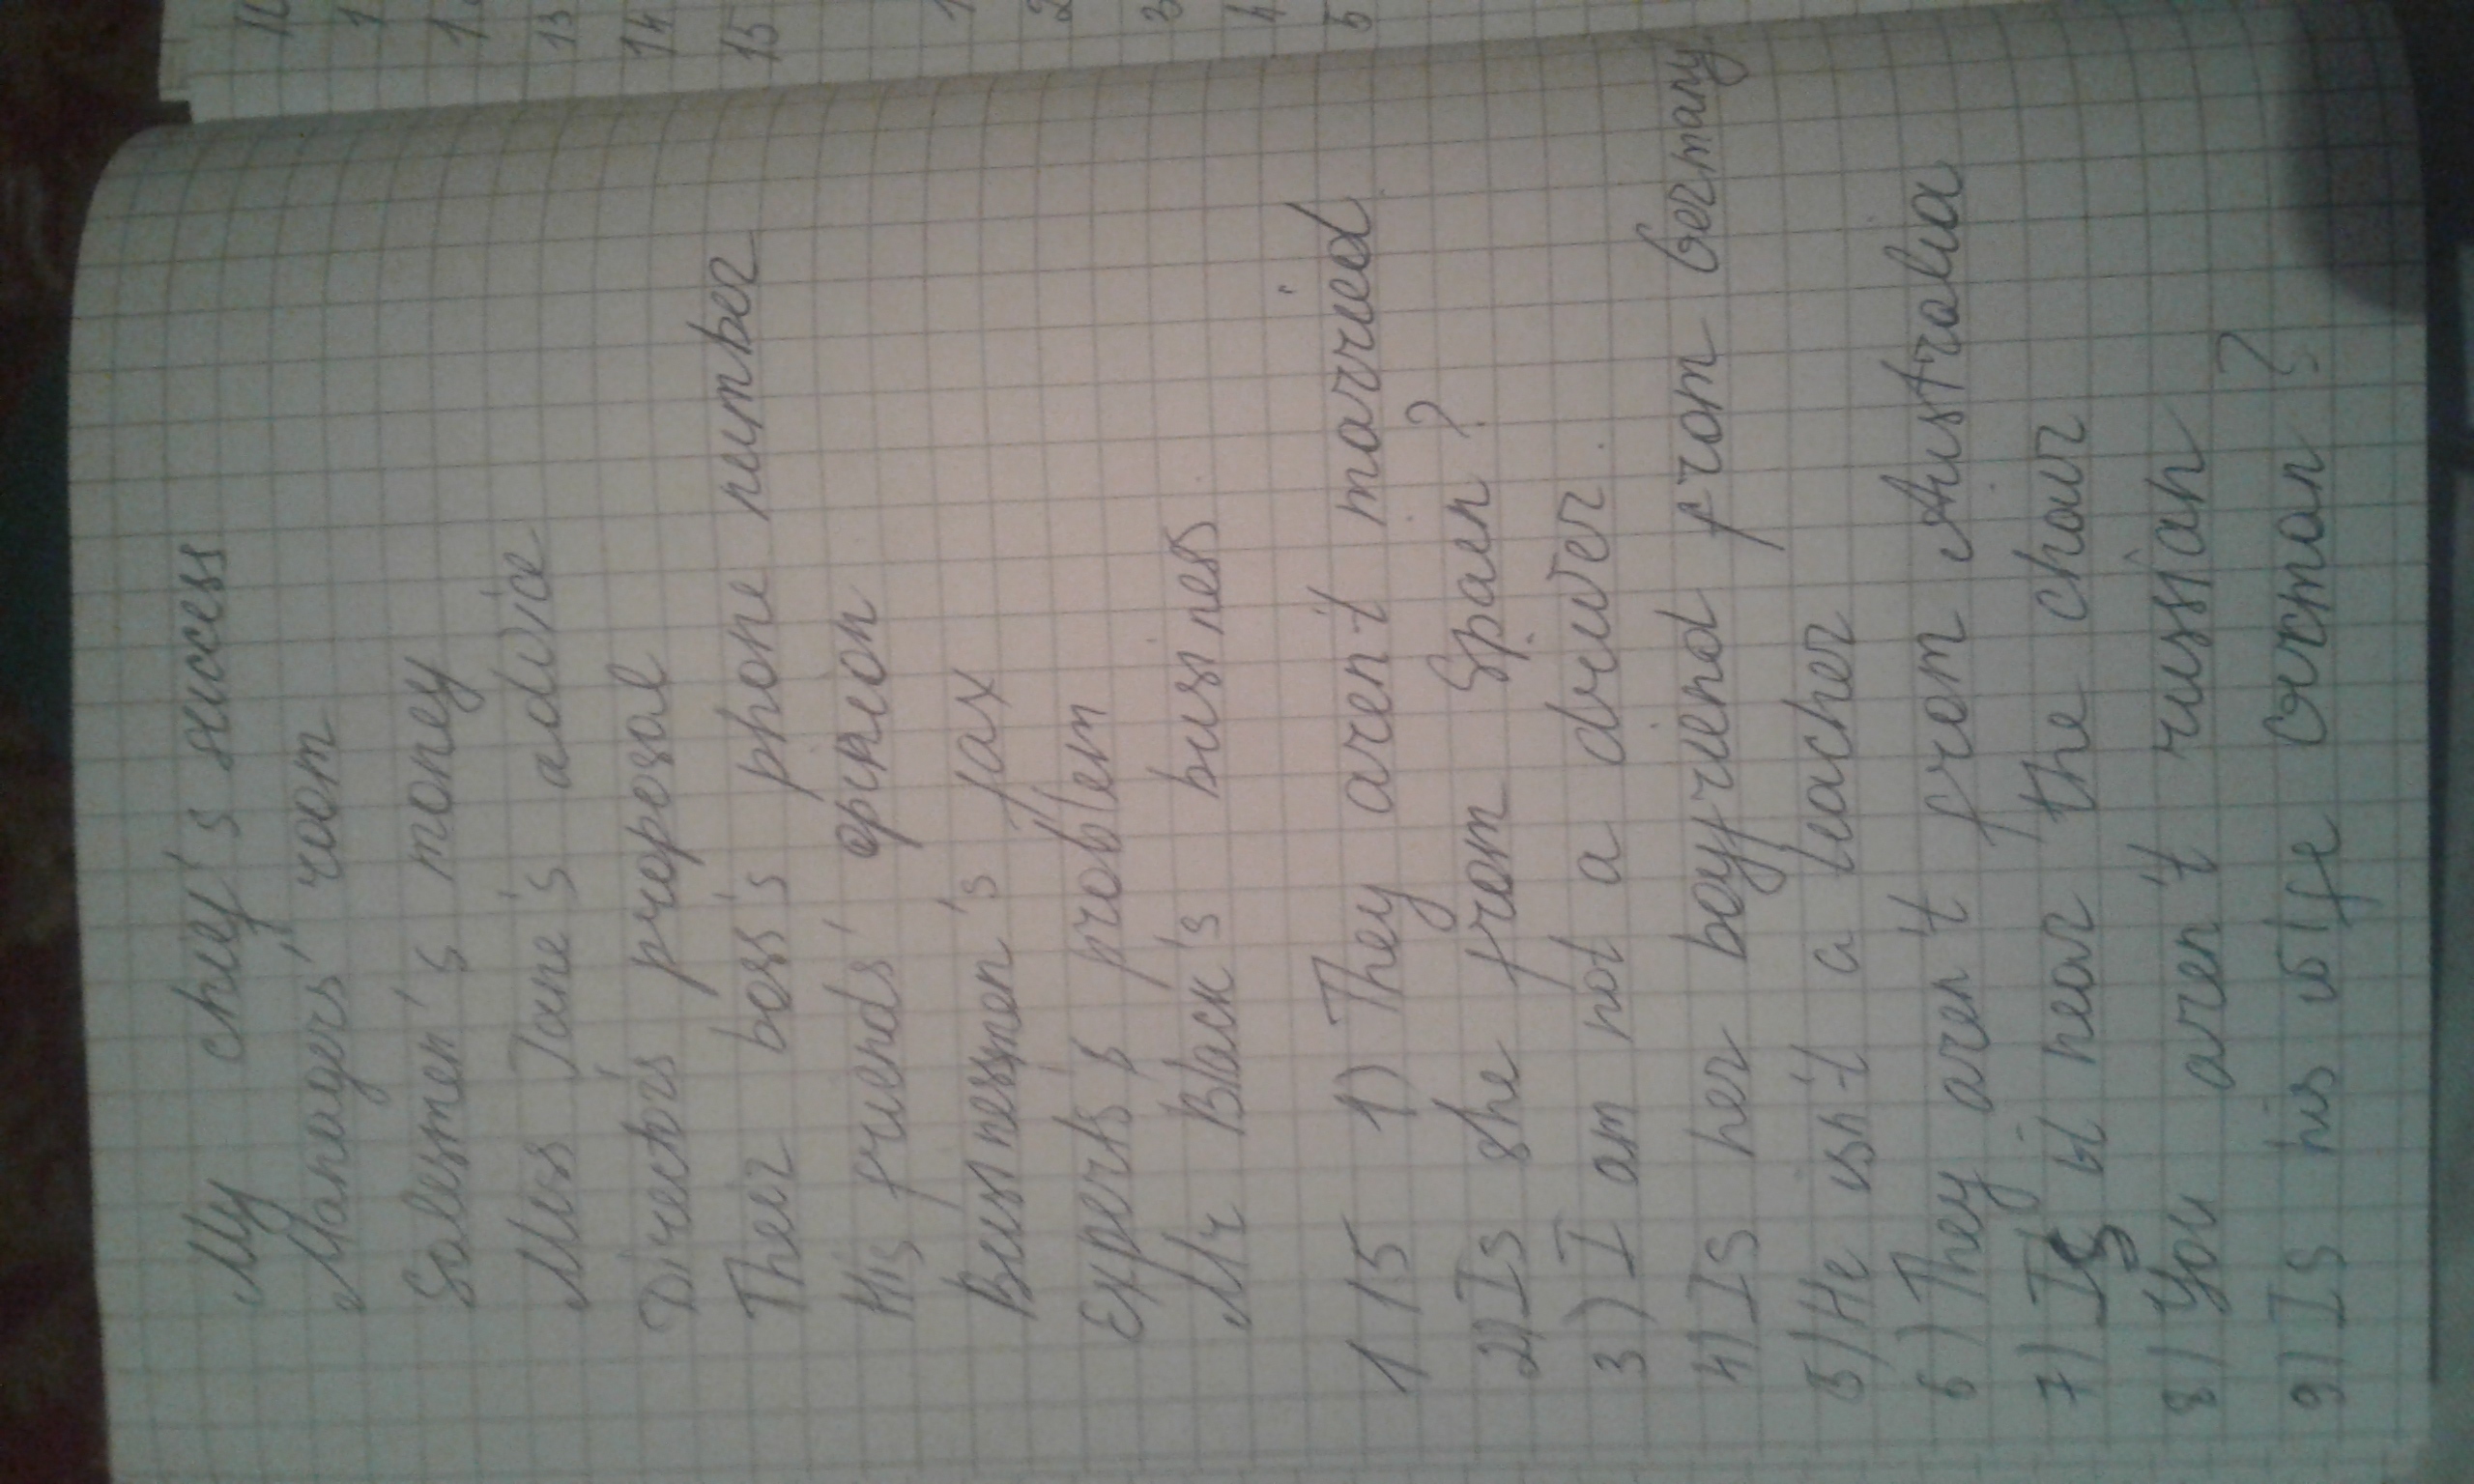 My chef's success
Managers' room
Salesmen's money
Miss Jane's advice
Director's proposal
Their boss's phone number
His friends' opinion
Businessmen's fax
Experts's problem
Mr Black's business
1 15 1) They aren't married
2) Is she from Spain?
3) I am not a driver.
4) Is her boyfriend from Germany
5) He isn't a teacher
6) They aren't from Australia
7) Is it near the chair
8) You aren't russian
9) Is his wife German?
1
13
14
15
1
2
3
4
5